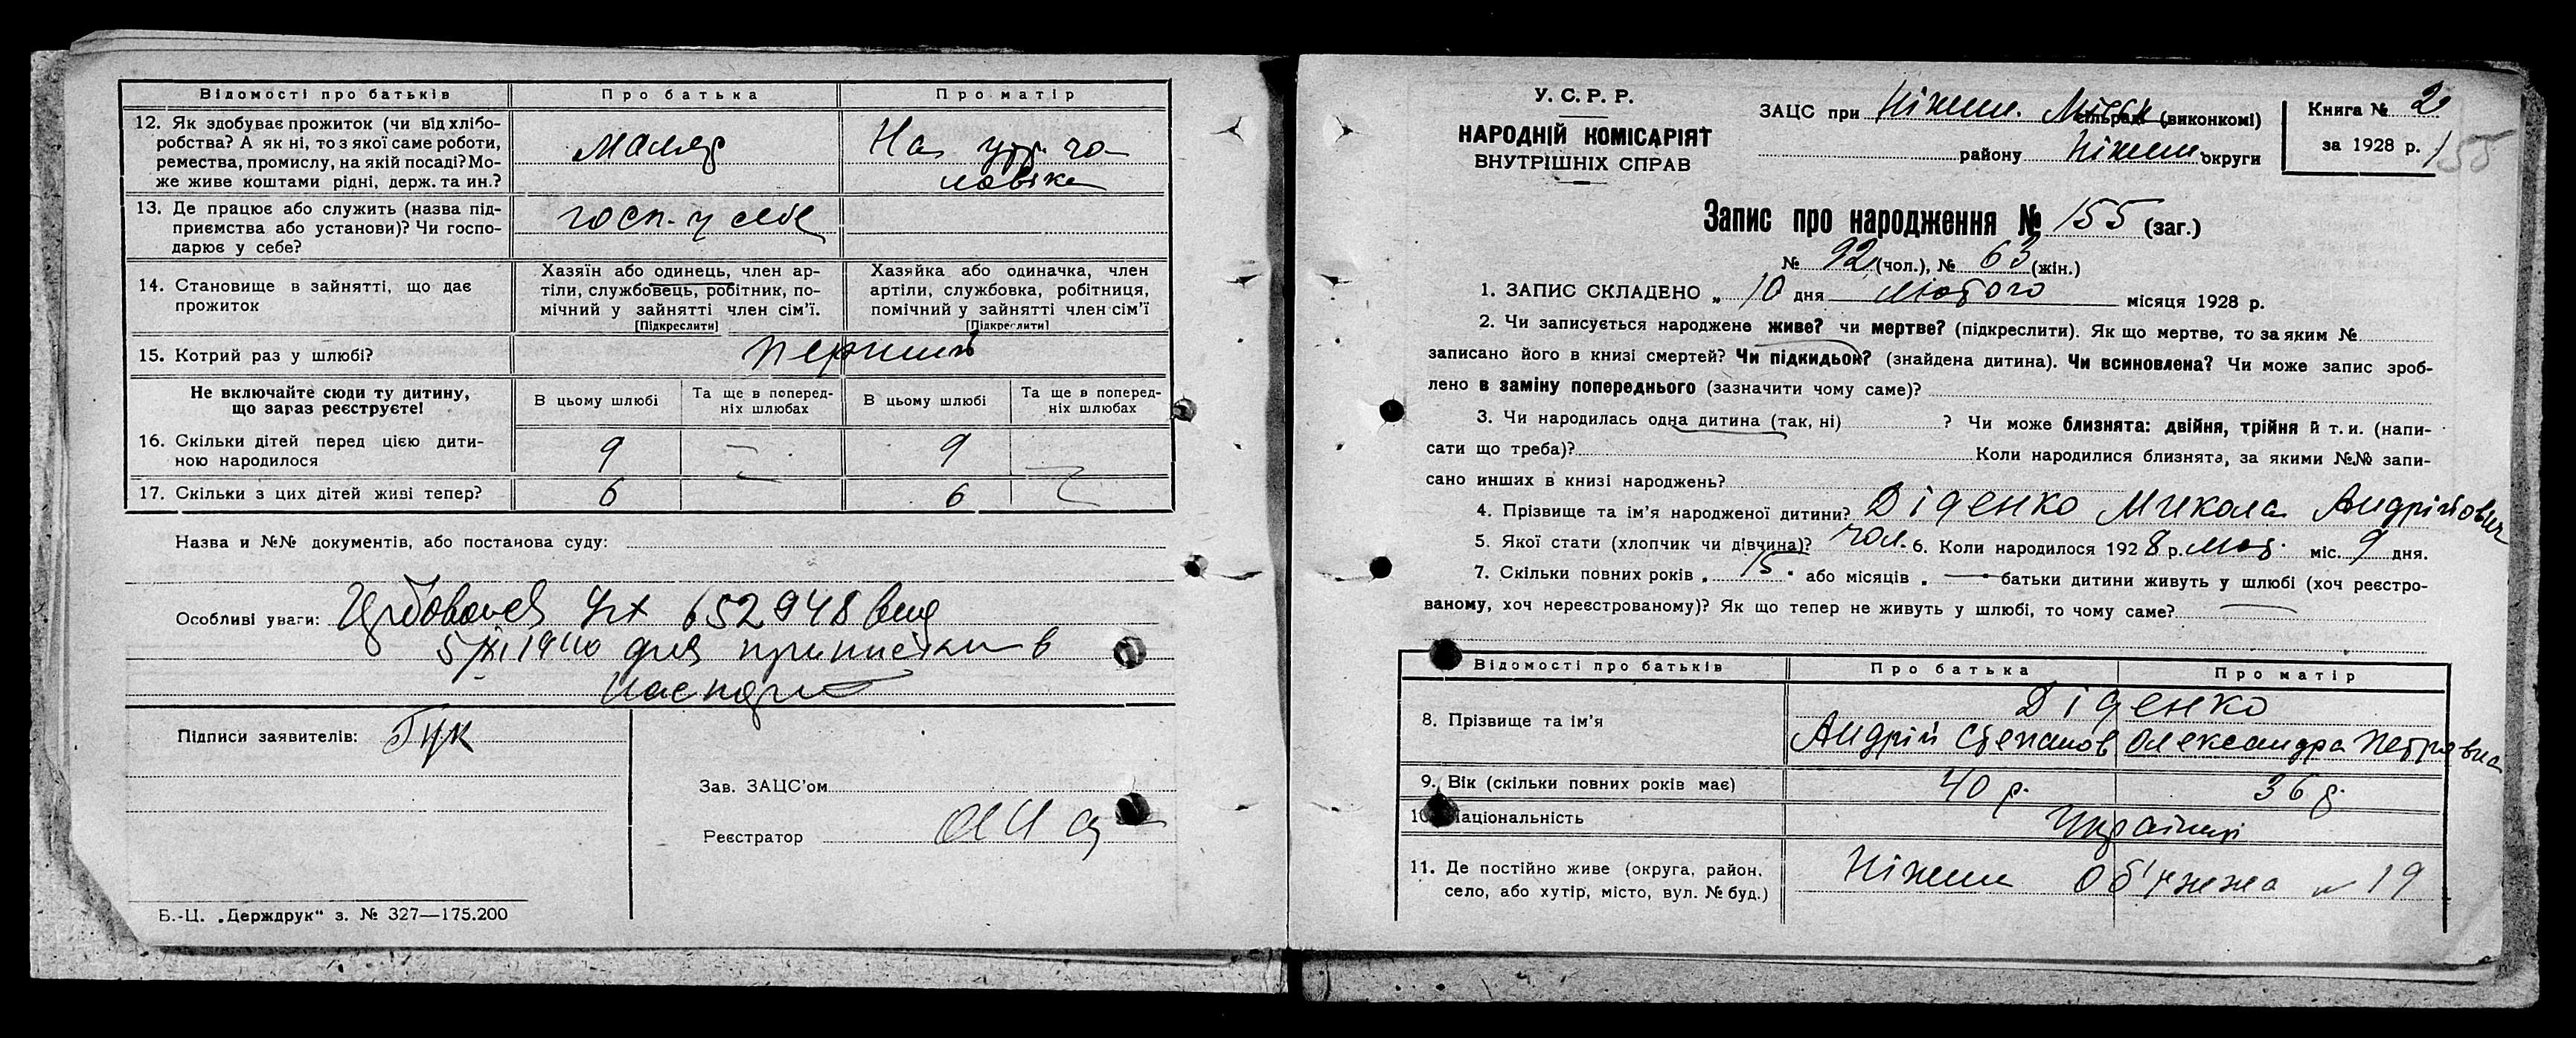 Відомості про батьків
Про батька
Про матір
12. Як здобуває прожиток (чи від хлібо-
робства? А як ні, то з якої саме роботи,
ремества, промислу, на якій посаді? Мо-
же живе коштами рідні, держ. та ин.?
Маляр
На утр. чо-
ловіка
13. Де працює або служить (назва під-
приємства або установи)? Чи госпо-
дарює у себе?
госп. у себе
14. Становище в зайнятті, що дає
прожиток
Хазяїн або одинець, член ар-
тіли, службовець, робітник, по-
мічний у зайнятті член сім’ї.
[Підкреслити]
Хазяйка або одиначка, член
артіли, службовка, робітниця,
помічний у зайнятті член сім’ї
[Підкреслити]
15. Котрий раз у шлюбі?
перший
Не включайте сюди ту дитину,
що зараз реєструєте!
В цьому шлюбі
Та ще в поперед-
ніх шлюбах
В цьому шлюбі
Та ще в поперед-
ніх шлюбах
16. Скільки дітей перед цією дити-
ною народилося
9
—
9
—
17. Скільки з цих дітей живі тепер?
6
6
Назва и №№ документів, або постанова суду:
Особливі уваги: 652948
5/XI 1940 для приписки в
паспорт
Підписи заявителів: Гук
Зав. ЗАЦС’ом
Реєстратор
Б.-Ц. „Держдрук“ з. № 327—175.200
У. С. Р. Р.
НАРОДНІЙ КОМІСАРІЯТ
ВНУТРІШНІХ СПРАВ
ЗАЦС при Ніжин. сільраді (виконкомі)
району Ніжин. округи
Книга № 2
за 1928 р.
155
Запис про народження № 155 (заг.)
№ 92 (чол.), № 63 (жін.)
1. ЗАПИС СКЛАДЕНО „ 10 дня лютого місяця 1928 р.
2. Чи записується народжене живе? чи мертве? (підкреслити). Як що мертве, то за яким №
записано його в книзі смертей? Чи підкидьок? (знайдена дитина). Чи всиновлена? Чи може запис зроб-
лено в заміну попереднього (зазначити чому саме)?
3. Чи народилась одна дитина (так, ні) ? Чи може близнята: двійня, трійня й т. и. (напи-
сати що треба)? Коли народилися близнята, за якими №№ запи-
сано инших в книзі народжень?
4. Прізвище та ім’я народженої дитини? Діденко Микола Андрійович
5. Якої стати (хлопчик чи дівчина)? чол. 6. Коли народилося 1928 р. лют. міс. 9 дня.
7. Скільки повних років „ 15 “ або місяців „ — “ батьки дитини живуть у шлюбі (хоч реєстро-
ваному, хоч нереєстрованому)? Як що тепер не живуть у шлюбі, то чому саме? —
Відомості про батьків
Про батька
Про матір
Діденко
8. Прізвище та ім’я
Андрій Степанов
Олександра Петровна
9. Вік (скільки повних років має)
40 р.
36 р.
10. Національність
Українці
11. Де постійно живе (округа, район,
село, або хутір, місто, вул. № буд.)
Ніжин Об'їжжа № 19